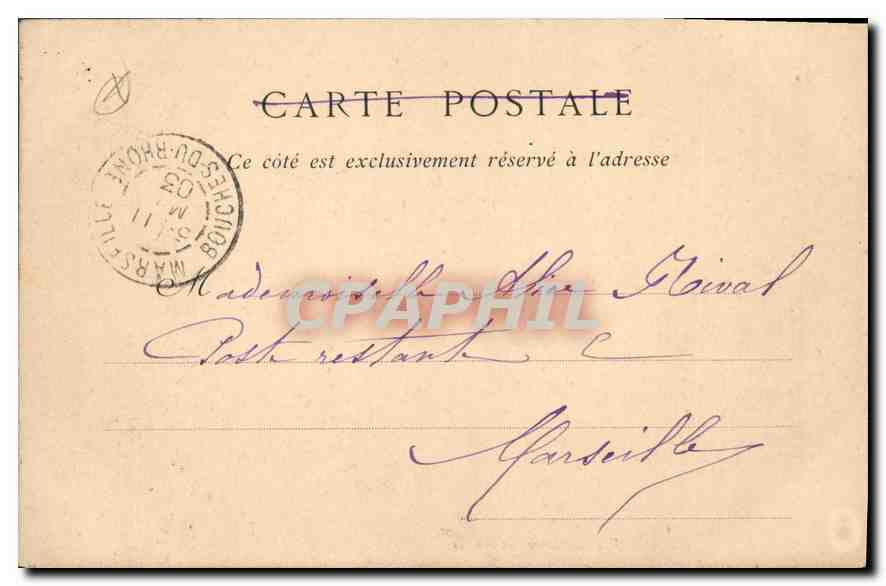 CARTE POSTALE
Ce côté est exclusivement réservé à l'adresse
MARSEILLE
BOUCHES-DU-RHONE
11
03
Mademoiselle Rival
CPAPHIL
Poste restante
Marseille